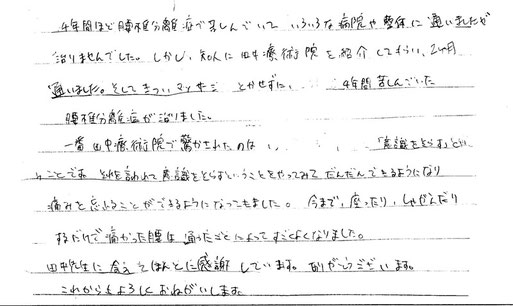 4年間ほど腰椎分離症で苦しんでいて いろいろな病院や整体に通いましたが
治りませんでした。しかし、知人に田中療術院を紹介してもらい、2ヶ月
通いました。そしてきついマッサージとかせずに、 4年間苦しんでいた
腰椎分離症が治りました。
一番田中療術院で驚かされたのは、 「意識をとらす」とい
うことです それを言われて意識をとらすということをやってみて だんだんできるようになり
痛みを忘れることができるようになってきました。今まで、座ったり、しゃがんだり
するだけで痛かった腰は 通ったごとによってすごくよくなりました。
田中先生に会えてほんとに感謝しています。ありがとうございます。
これからもよろしくおねがいします。